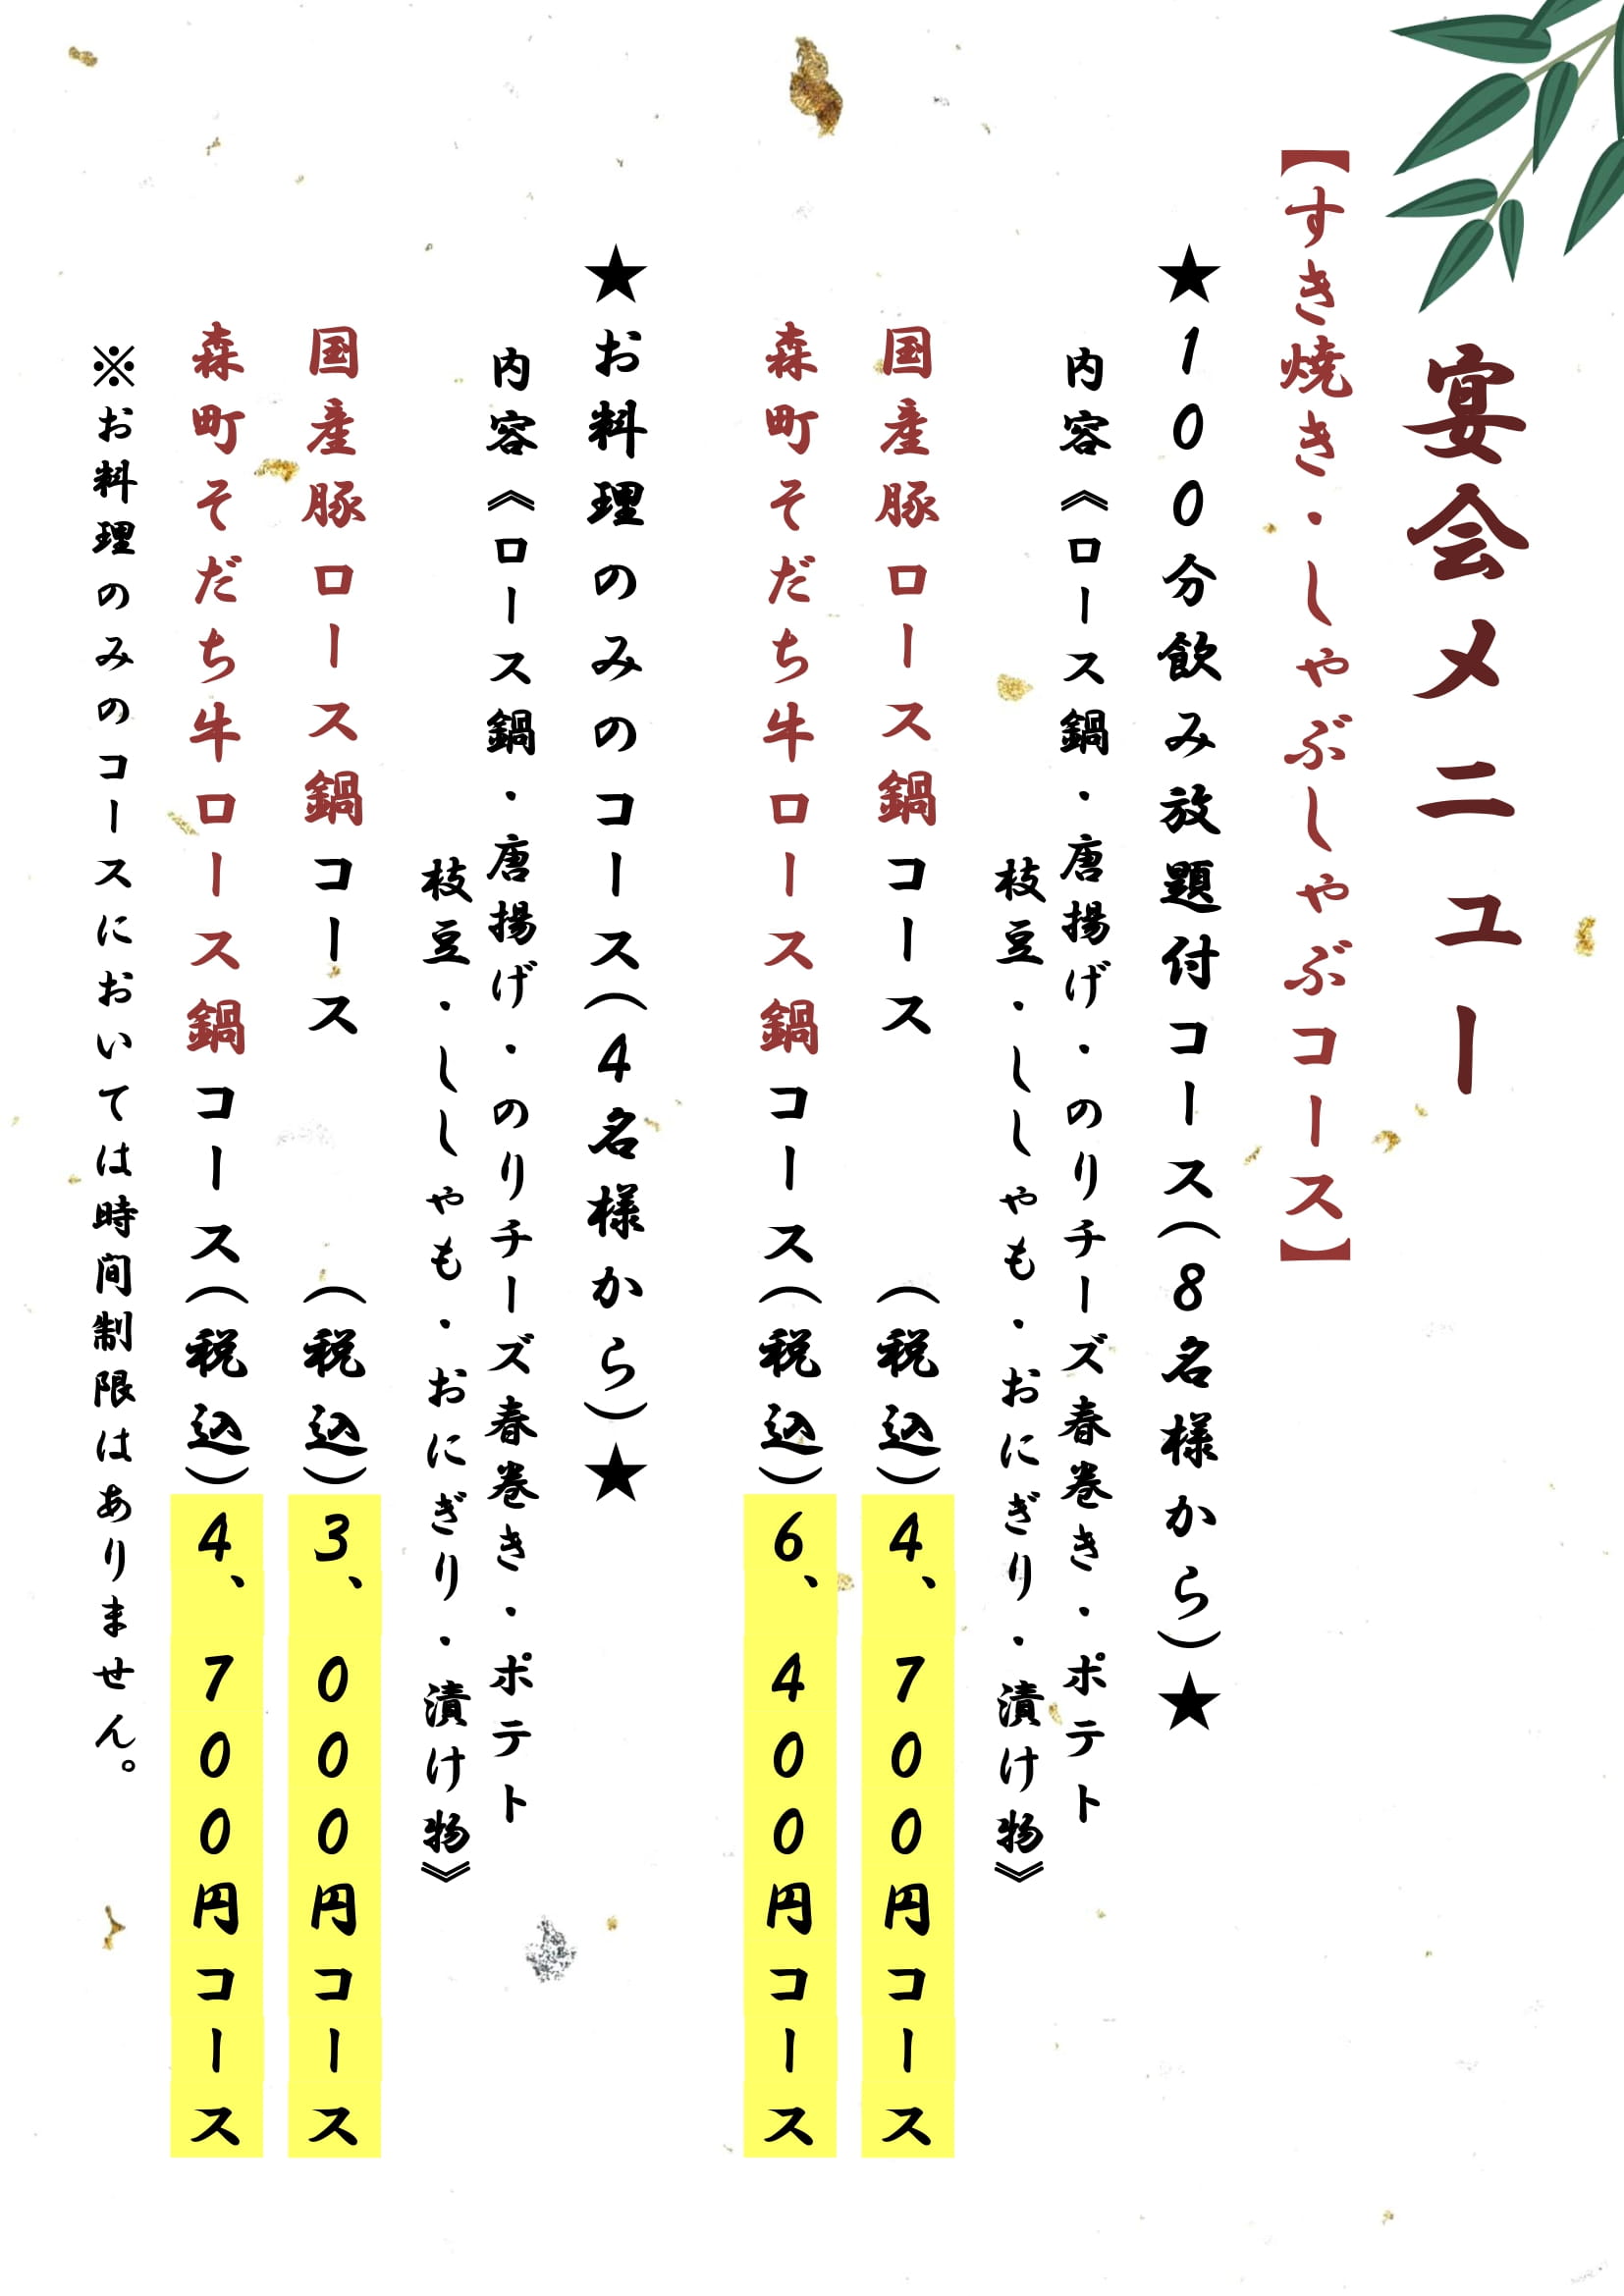 宴会メニュー
【すき焼き・しゃぶしゃぶコース】
★100分飲み放題付コース(8名様から)★
内容《ロース鍋・唐揚げ・のりチーズ春巻き・ポテト
枝豆・ししゃも・おにぎり・漬け物》
国産豚ロース鍋コース (税込)4、700円コース
森町そだち牛ロース鍋コース(税込)6、400円コース
★お料理のみのコース(4名様から)★
内容《ロース鍋・唐揚げ・のりチーズ春巻き・ポテト
枝豆・ししゃも・おにぎり・漬け物》
国産豚ロース鍋コース (税込)3、000円コース
森町そだち牛ロース鍋コース(税込)4、700円コース
※お料理のみのコースにおいては時間制限はありません。